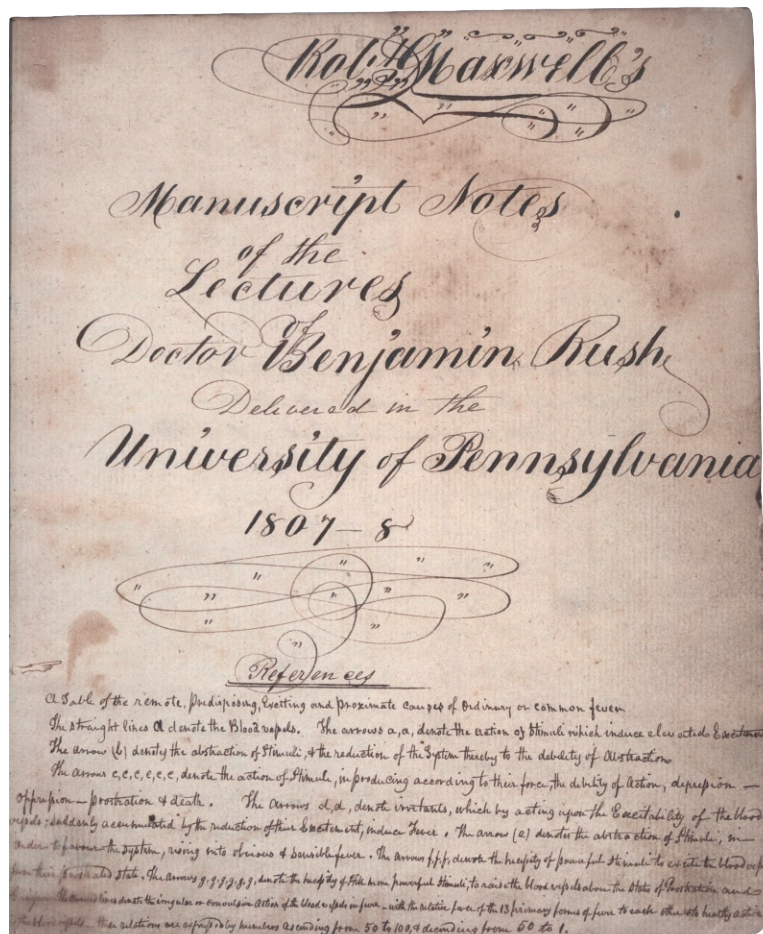 Rob. H. Maxwell's
Manuscript Notes
of the
Lectures
of
Doctor Benjamin Rush
Delivered in the
University of Pennsylvania
1807–8
References
A Table of the remote, Predisposing, Exciting and Proximate causes of Ordinary or common fever.
The straight lines A denote the Blood vessels. The arrows a, a, denote the action of Stimuli which induce elevated Excitement
The arrow (b) denotes the abstraction of Stimuli, & the reduction of the System thereby to the debility of Abstraction
The arrows c, c, c, c, c, c, denote the action of Stimuli, in producing according to their force, the debility of Action, depression —
Oppression — prostration & death. The Arrows d, d, denote irritants, which by acting upon the Excitability of the blood
vessels suddenly accumulated by the reduction of their Excitement, induce Fever. The arrow (e) denotes the abstraction of Stimuli, in
order to favour the System, rising into obvious & sensible fever. The arrows f, f, f, denote the necessity of powerful Stimuli to excite the blood ves
from their prostrated state. The arrows g, g, g, g, g, g, denote the necessity of still more powerful Stimuli, to raise the blood vessels above the State of Prostration and
The curved lines denote the irregular or convulsive Action of the blood vessels in fever — with the relative force of the 13 primary forms of fever to each other & to healthy action
the blood vessels. these relations are expressed by numbers ascending from 50 to 100, & descending from 50 to 1.